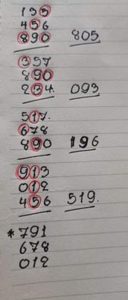 135
456
890 805
357
890
234 093
517.
678
890 196
913
012
456 519.
*791
678
012